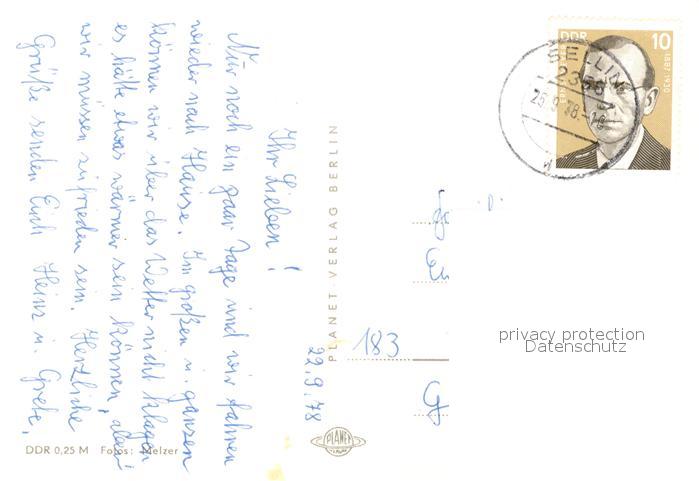 Ihr Lieben!
Nur noch ein paar Tage und wir fahren
wieder nach Hause. Im großen u. ganzen
können wir über das Wetter nicht klagen
es hätte etwas wärmer sein können, aber
wir müssen zufrieden sein. Herzliche
Grüße senden Euch Heinz u. Grete.
22.9.78
PLANET-VERLAG BERLIN
DDR 0,25 M Fotos: Melzer
PLANET
DDR
10
1887-1930
SELLIN
2356
183
G
privacy protection
Datenschutz